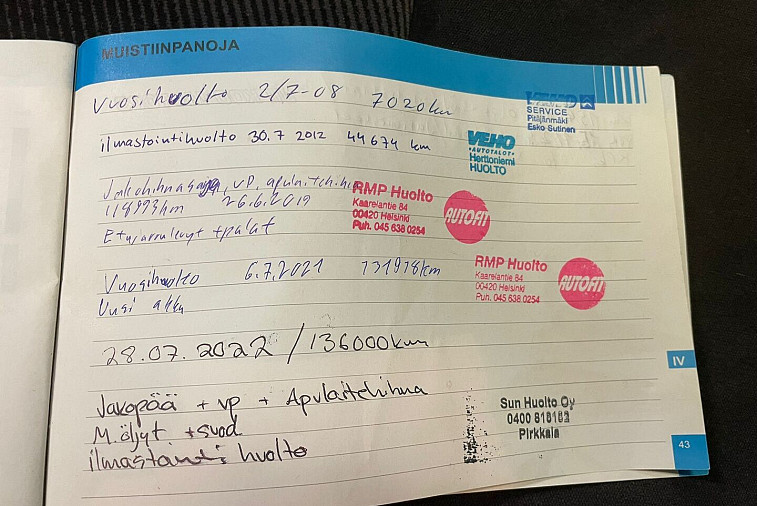 MUISTIINPANOJA
Vuosihuolto 2/7-08 7020km
VEHO
SERVICE
Pitäjänmäki
Esko Sutinen
ilmastointihuolto 30.7 2012 44674 km
VEHO
AUTOTALOT
Herttoniemi
HUOLTO
Jakohihnasarja, VP, apulaitehihna
118993km 26.6.2019
Etujarrulevyt + palat
RMP Huolto
Kaarelantie 84
00420 Helsinki
Puh. 045 638 0254
AUTOFIT
Vuosihuolto 6.7.2021 131918km
Uusi akku
RMP Huolto
Kaarelantie 84
00420 Helsinki
Puh. 045 638 0254
AUTOFIT
28.07.2022 / 136000km
IV
Jakopää + vp + Apulaitehihna
M. öljyt + suod
ilmastointi huolto
Sun Huolto Oy
0400 818182
Pirkkala
43